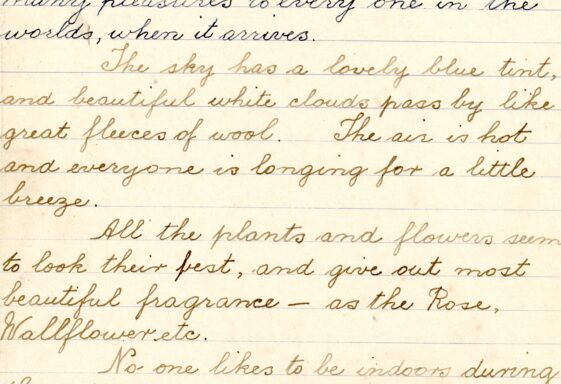 many pleasures to every one in the
worlds, when it arrives.
The sky has a lovely blue tint,
and beautiful white clouds pass by like
great fleeces of wool. The air is hot
and everyone is longing for a little
breeze.
All the plants and flowers seem
to look their best, and give out most
beautiful fragrance – as the Rose,
Wallflower, etc.
No one likes to be indoors during